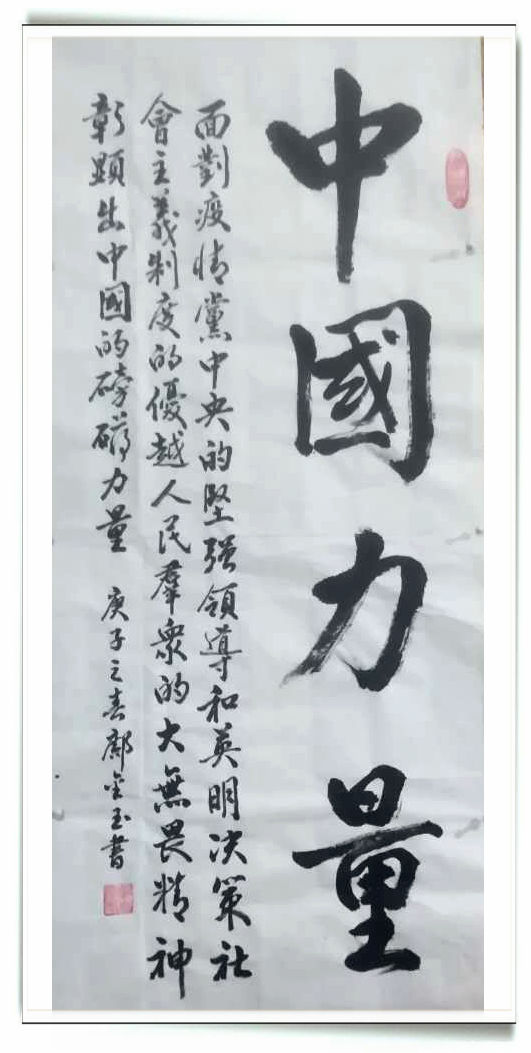 中國力量
面對疫情黨中央的堅强領導和英明决策社
會主義制度的優越人民羣衆的大無畏精神
彰顯出中國的磅礴力量 庚子之春鄺金玉書